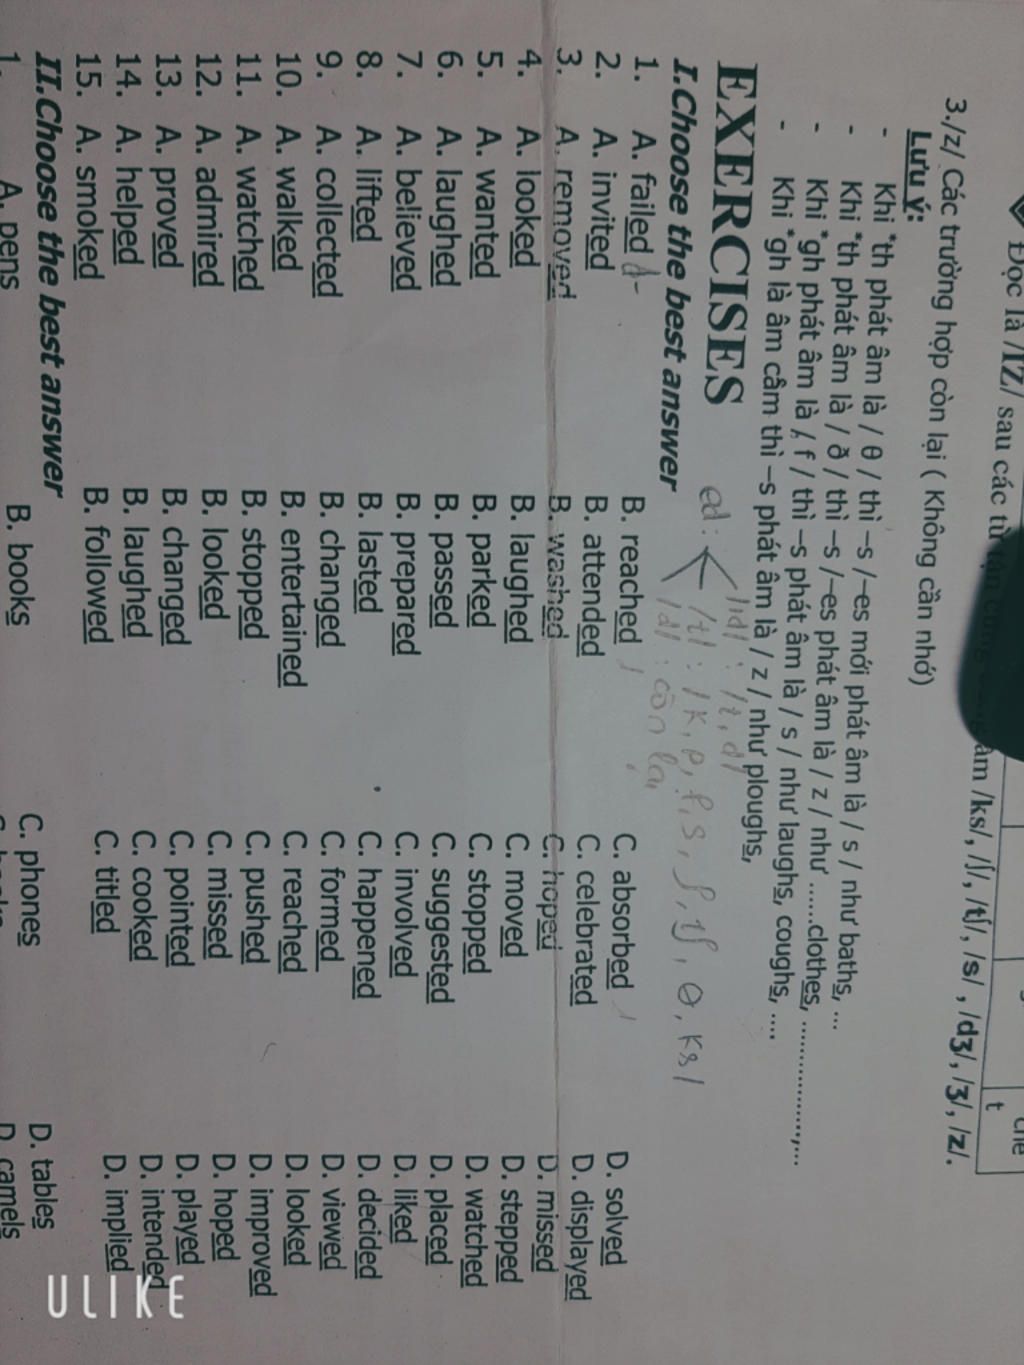 Đọc là /IZ/ sau các từ tận cùng âm /ks/, /ʃ/, /tʃ/, /s/ , /dʒ/, /ʒ/, /z/.
t
3./z/ Các trường hợp còn lại ( Không cần nhớ)
Lưu ý:
- Khi *th phát âm là / θ / thì –s /–es mới phát âm là / s / như baths, ...
- Khi *th phát âm là / ð / thì –s /–es phát âm là / z / như ......clothes, ..................,...
- Khi *gh phát âm là / f / thì –s phát âm là / s / như laughs, coughs, ....
- Khi *gh là âm câm thì –s phát âm là / z / như ploughs,
EXERCISES
ed: /id/ : /t, d/
/t/ : /k, p, f, s, ʃ, tʃ, θ, ks/
/d/ : còn lại
I.Choose the best answer
1. A. failed B. reached C. absorbed D. solved
2. A. invited B. attended C. celebrated D. displayed
3. A. removed B. washed C. hoped D. missed
4. A. looked B. laughed C. moved D. stepped
5. A. wanted B. parked C. stopped D. watched
6. A. laughed B. passed C. suggested D. placed
7. A. believed B. prepared C. involved D. liked
8. A. lifted B. lasted C. happened D. decided
9. A. collected B. changed C. formed D. viewed
10. A. walked B. entertained C. reached D. looked
11. A. watched B. stopped C. pushed D. improved
12. A. admired B. looked C. missed D. hoped
13. A. proved B. changed C. pointed D. played
14. A. helped B. laughed C. cooked D. intended
15. A. smoked B. followed C. titled D. implied
II.Choose the best answer
1. A. pens B. books C. phones D. tables
D. camels
ULIKE